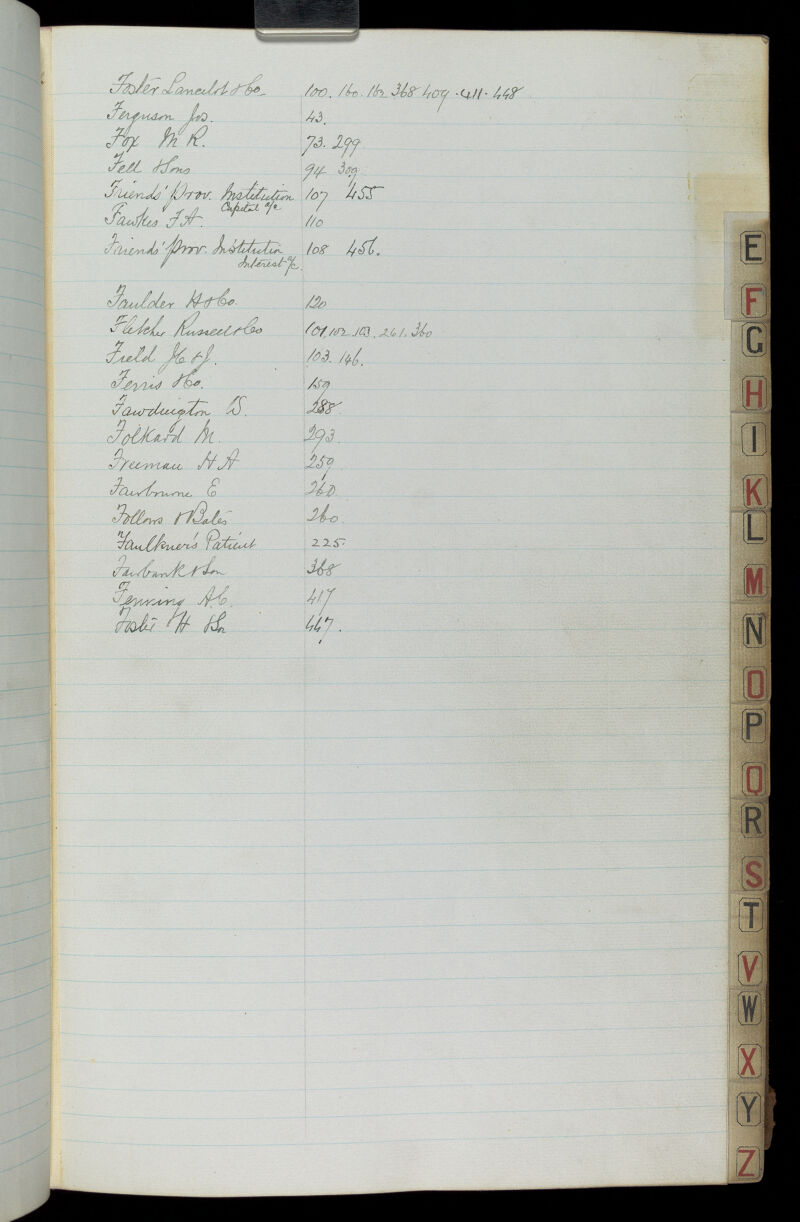 Foster Lancelot & Co. 100. 160. 162 368 409. 411. 448
Ferguson Jos. 43.
Fox M R. 73. 299
Fell & Sons 94 309
Friends' Prov. Institution 107 455
Capital a/c
Fawkes F A. 110
Friends' Prov. Institution 108 456.
Interest a/c.
Faulder H & Co. 120
Fletcher Russell & Co 102. 103. 261. 360
Field J C & J. 103. 146.
Ferris & Co. 159
Fawdington 288
Folkard M. 293.
Freeman H A 259
Fairbourne E 260
Follows & Bate's 260
Faulkner's Patient 225.
Fairbank & Son 368
Fenning A C. 417
Foster H & Son 447.
E
F
G
H
I
K
L
M
N
O
P
Q
R
S
T
V
W
X
Y
Z